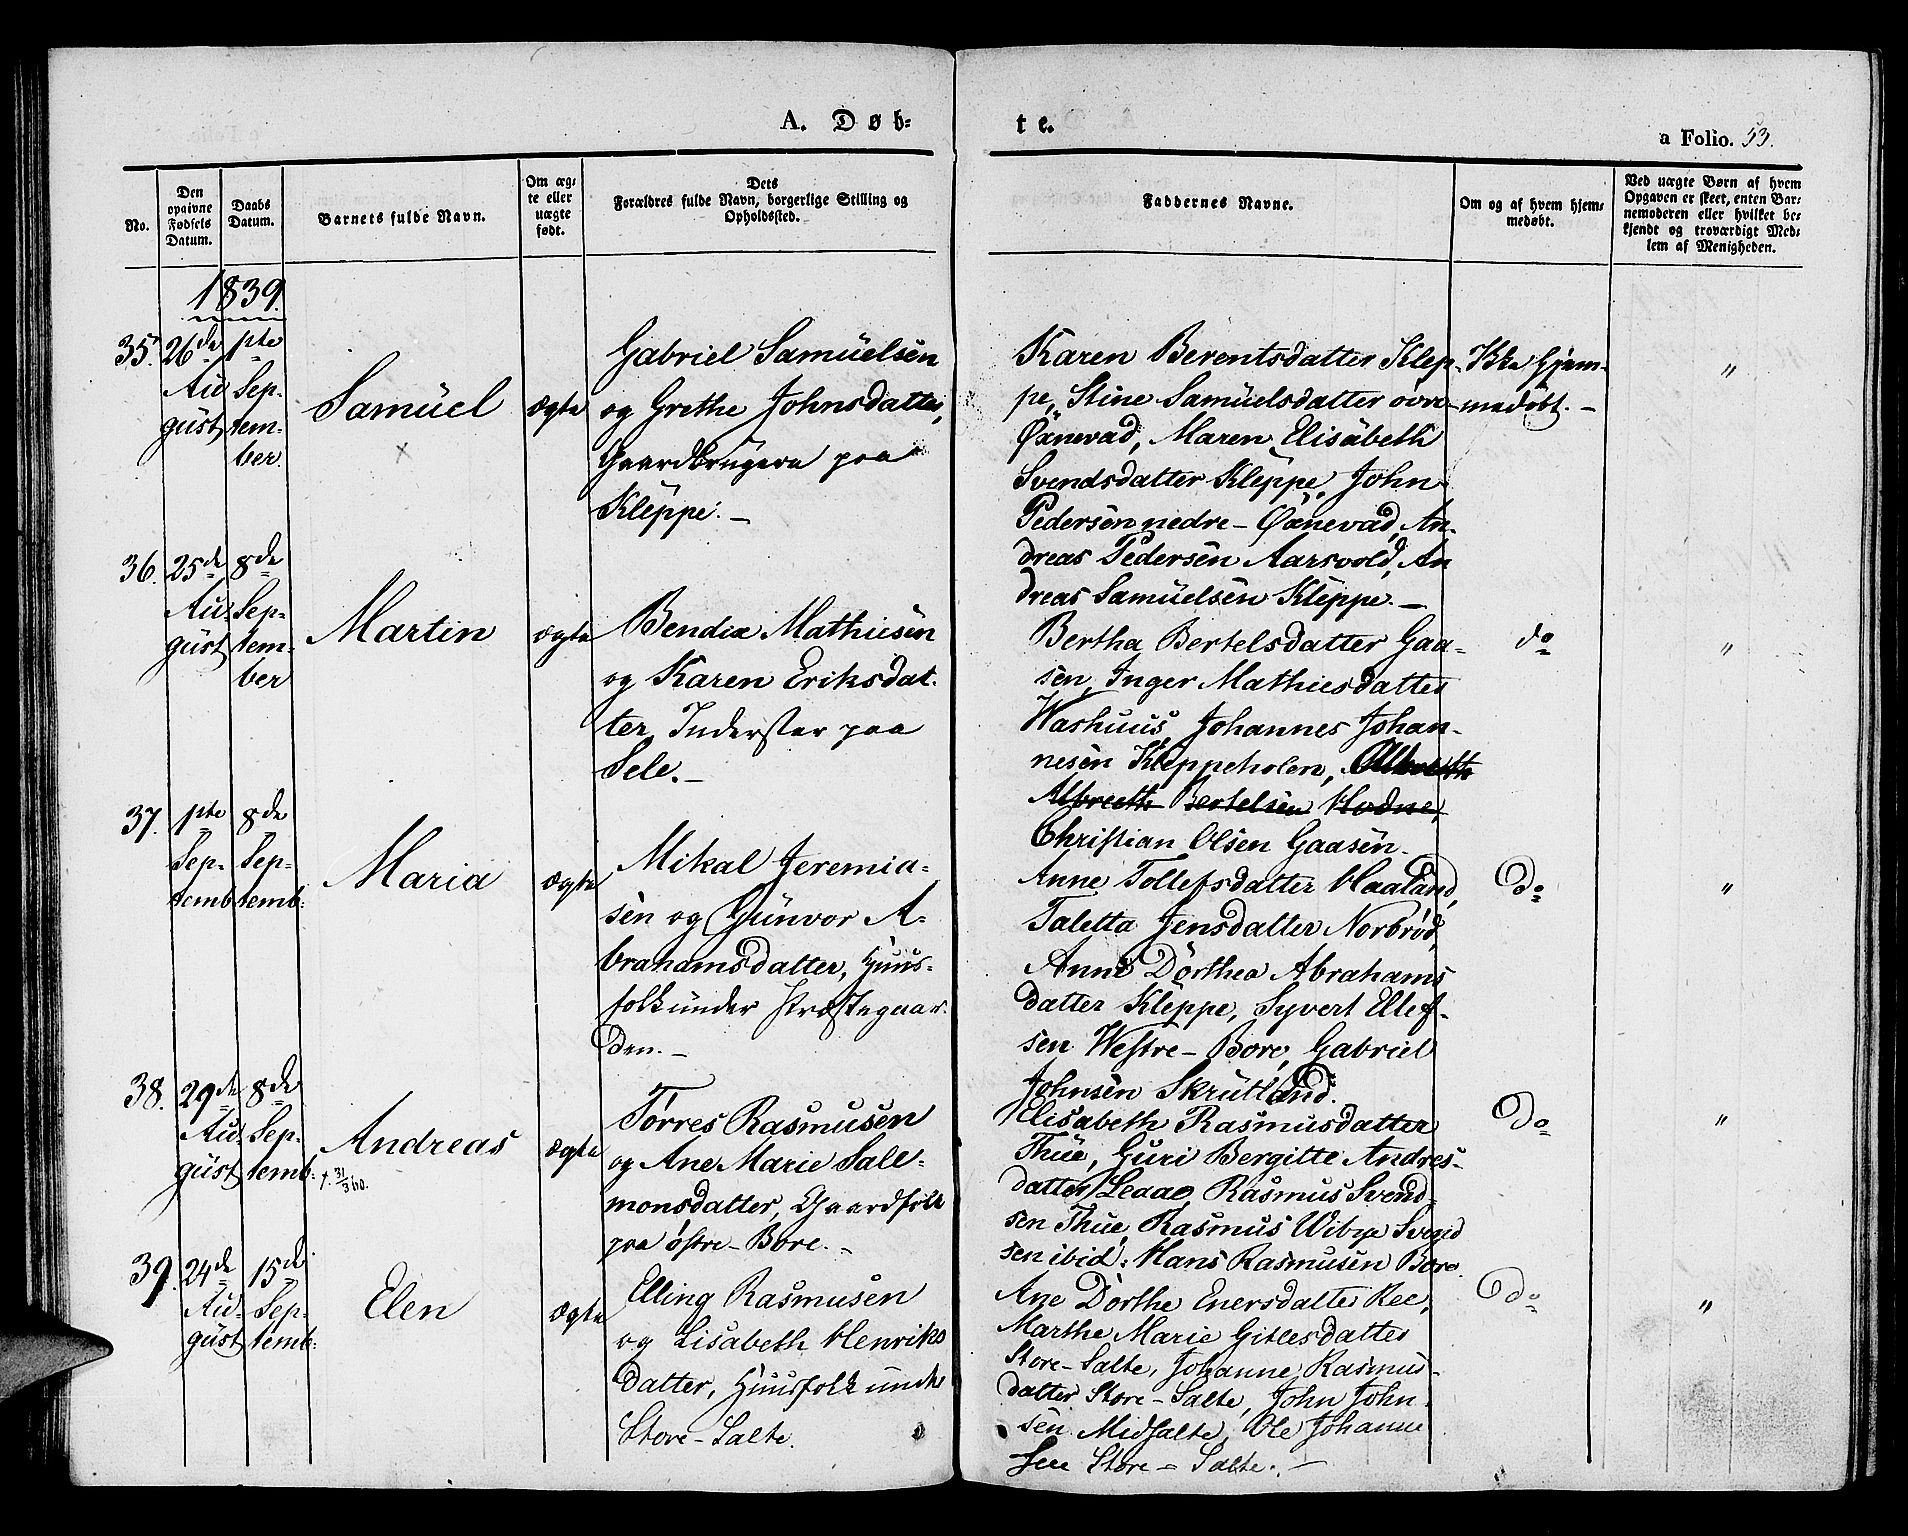 A. Døb-
te.
a Folio. 53.
No.
Den
opgivne
Fødsels
Datum.
Daabs
Datum.
Barnets fulde Navn.
Om æg-
te eller
uægte
født.
Dets
Forældres fulde Navn, borgerlige Stilling og
Opholdssted.
Faddernes Navne.
Om og af hvem hjem-
medøbt.
Ved uægte Børn af hvem
Opgaven er skeet, enten Bar-
nemoderen eller hvilket be-
kjendt og troværdigt Med-
lem af Menigheden.
1839.
35.
26de
Au-
gust
1ste
Sep-
tem-
ber.
Samuel
ægte
Gabriel Samuelsen
og Grethe Johnsdatter,
Gaardbrugere paa
Kleppe. -
Karen Berentsdatter Klep-
pe, Stine Samuelsdatter øvre-
Øxnevad, Maren Elisabeth
Svendsdatter Kleppe, John
Pedersen nedre-Øxnevad, An-
dreas Pedersen Aarsvold, An
dreas Samuelsen Kleppe. -
Ikke hjem-
medøbt. -
"
36.
25de
Au-
gust
8de
Sep-
tem-
ber
Martin
ægte
Bendix Mathiesen
og Karen Eriksdat-
ter, Inderster paa
Sele. -
Bertha Bertelsdatter Gaa-
sen, Inger Mathiesdatter
Washuus, Johannes Johan-
nesen Kleppeholen,
Albreth Bertelsen Hodne,
Christian Olsen Gaasen.
do
"
37.
1ste
Sep-
temb
8de
Sep-
temb.
Maria
ægte
Mikal Jeremia-
sen og Gunvor A-
brahamsdatter, Huus-
folk under Præstegaar-
den. -
Anne Tollefsdatter Haaland,
Taletta Jensdatter Norbrød,
Anne Dorthea Abrahams
datter Kleppe, Syvert Ellef-
sen Westre-Bore, Gabriel
Johnsen Skrutland.
Do
"
38.
29de
Au-
gust
8de
Sep-
temb.
Andreas
†. 31/3 60.
ægte
Tørres Rasmusen
og Ane Marie Sale-
monsdatter, Gaardfolk
paa østre-Bore. -
Elisabeth Rasmusdatter
Thue, Guri Bergitte Andres-
datter Leaae, Rasmus Svend-
sen Thue, Rasmus Wibye Svend
sen ibid: Hans Rasmusen Bore.
Do
"
39.
24de
Au-
gust
15de
Sep-
temb.
Elen
ægte
Elling Rasmusen
og Lisabeth Henriks
datter, Huusfolk under
Store-Salte.
Ane Dorthe Enersdatter Ree,
Marthe Marie Gitlesdatter
Store-Salte, Johanne Rasmus-
datter Store-Salte, John John-
sen Midsalte, Ole Johanne
sen Store-Salte. -
Do
"